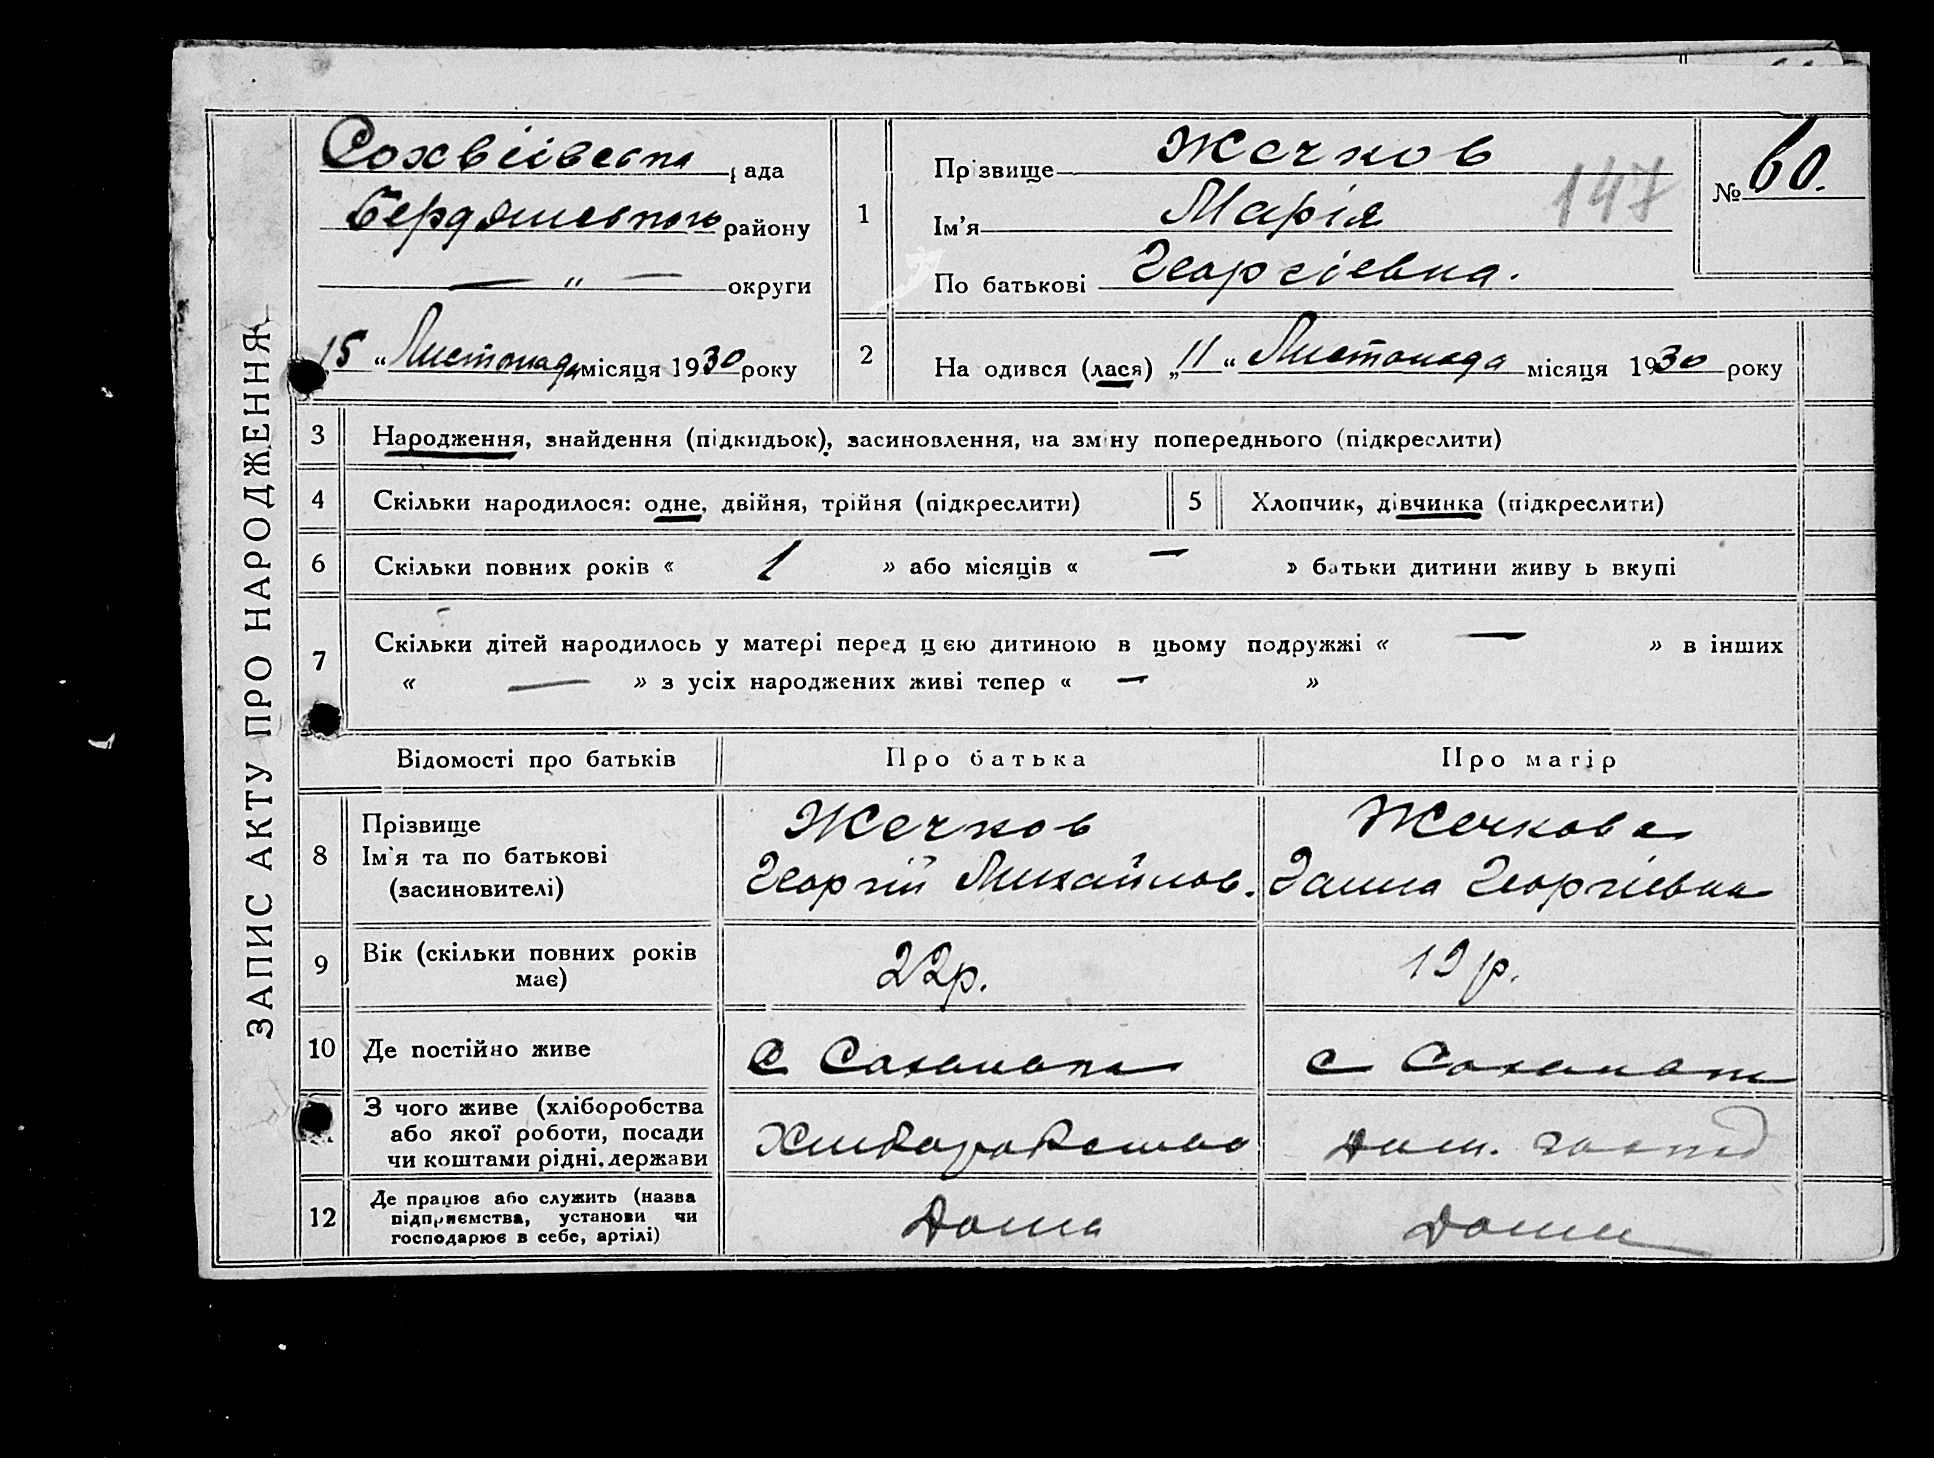 ЗАПИС АКТУ ПРО НАРОДЖЕННЯ
рада
Бердянського району
— „ — округи
15 “ Листопада місяця 1930 року
1
Прізвище Жечков
Ім’я Марія
По батькові Георгіевна.
147
№ 60.
2
На одився (лася) „ 11 “ Листопада місяця 1930 року
3 Народження, знайдення (підкидьок), засиновлення, на зміну попереднього (підкреслити)
4 Скільки народилося: одне, двійня, трійня (підкреслити)
5 Хлопчик, дівчинка (підкреслити)
6 Скільки повних років « 1 » або місяців « — » батьки дитини живу ь вкупі
7 Скільки дітей народилось у матері перед цею дитиною в цьому подружжі « — » в інших
« — » з усіх народжених живі тепер « — »
Відомості про батьків Про батька Про матір
8 Прізвище
Ім'я та по батькові
(засиновителі)
Жечков
Георгій Михайлов.
Жечкова
Ганна Георгіевна
9 Вік (скільки повних років
має)
22р.
19 р.
10 Де постійно живе
С
с
З чого живе (хліборобства
або якої роботи, посади
чи коштами рідні, держави
Хліборобство
Дом. господ
12 Де працює або служить (назва
підприємства, установи чи
господарює в себе, артілі)
Дома
Дома